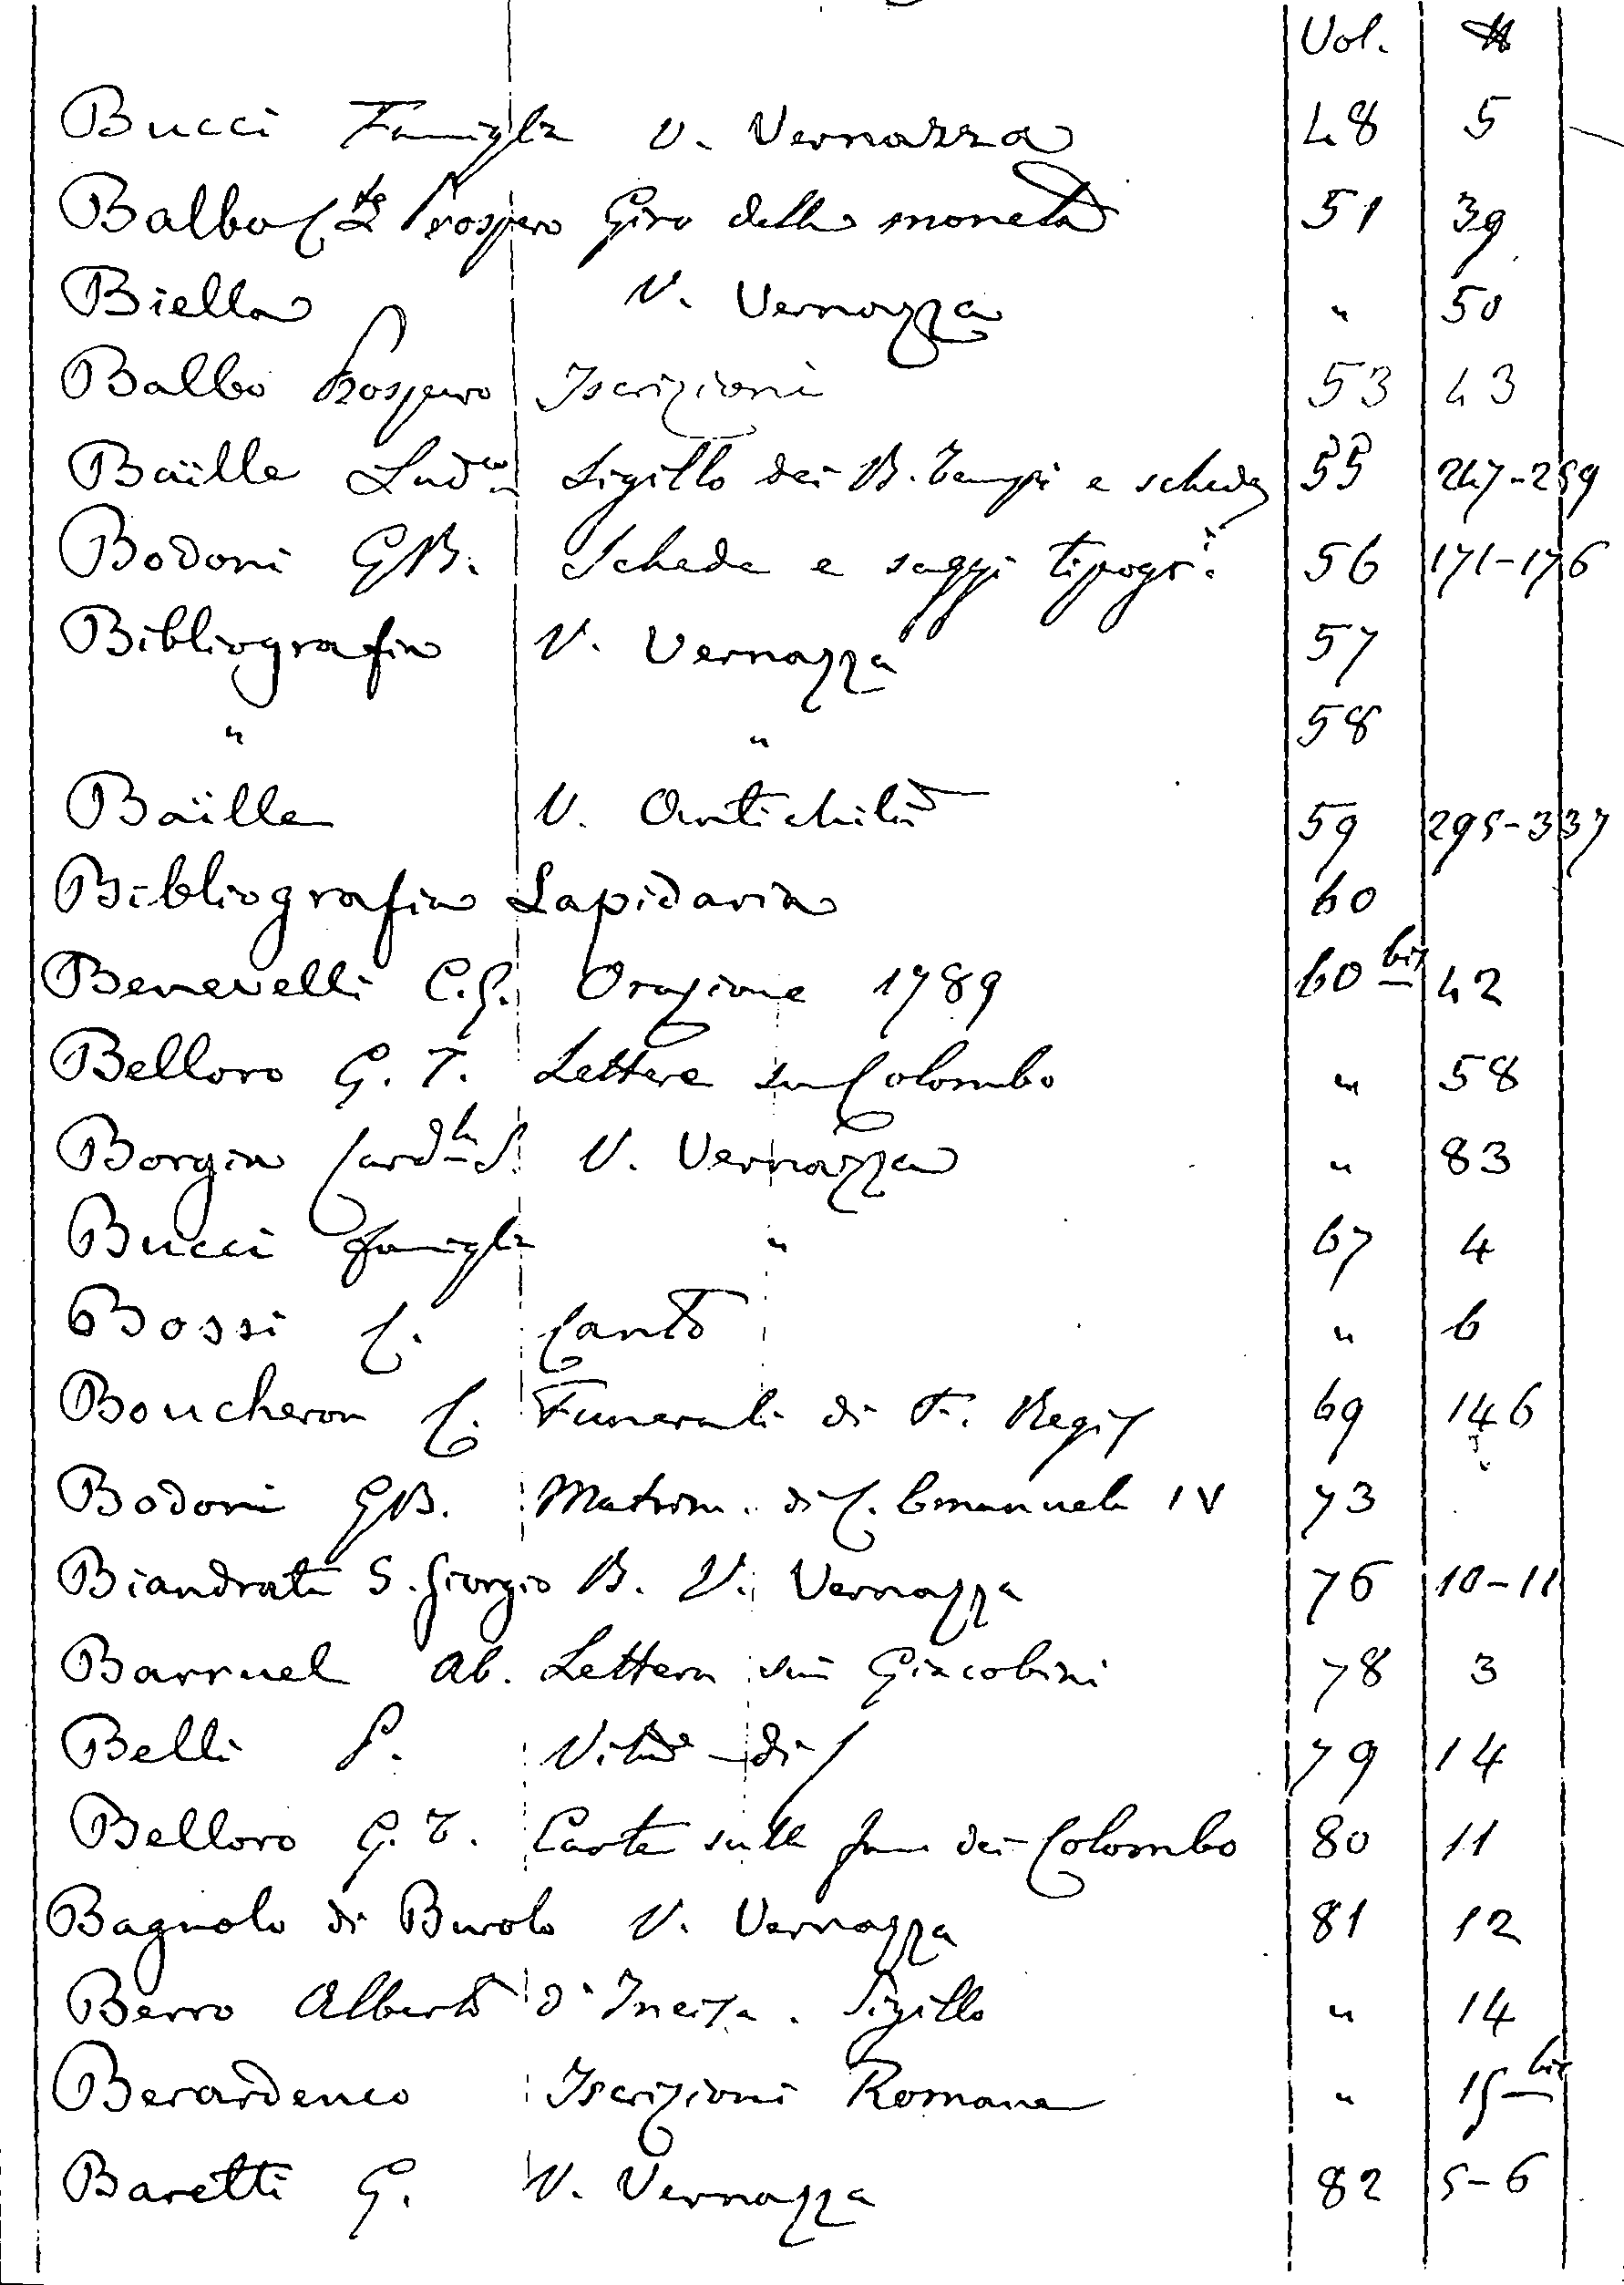 Vol. #
Bucci Famiglia V. Vernazza 48 5
Balbo C.te Prospero Giro della moneta 51 39
Biella V. Vernazza " 50
Balbo Prospero Iscrizioni 53 43
Baïlle Lud.co Sigillo dei B. Tempi e schede 55 247-259
Bodoni G.B. Schede e saggi tipogr.i 56 171-176
Bibliografia V. Vernazza 57
" " 58
Baïlle V. Antichità 59 295-337
Bibliografia Lapidaria 60
Benevelli C.G. Orazione 1789 60 bis 42
Belloro G. T. Lettere su Colombo " 58
Borgia Card.le S. V. Vernazza " 83
Bucci famiglia " 67 4
Bossi C. Canto " 6
Boucheron C. Funerali di F. Regis 69 146
Bodoni G.B. Matrim. di C. Emanuele IV 73
Biandrate S. Giorgio B. V. Vernazza 76 10-11
Barruel Ab. Lettera sui Giacobini 78 3
Belli P. di 79 14
Belloro G. T. Carte sulla fam dei Colombo 80 11
Bagnolo di Burolo V. Vernazza 81 12
Berro Alberto d'Incisa. Sigillo " 14
Berardenco Iscrizioni Romane " 15 bis
Baretti G. V. Vernazza 82 5-6